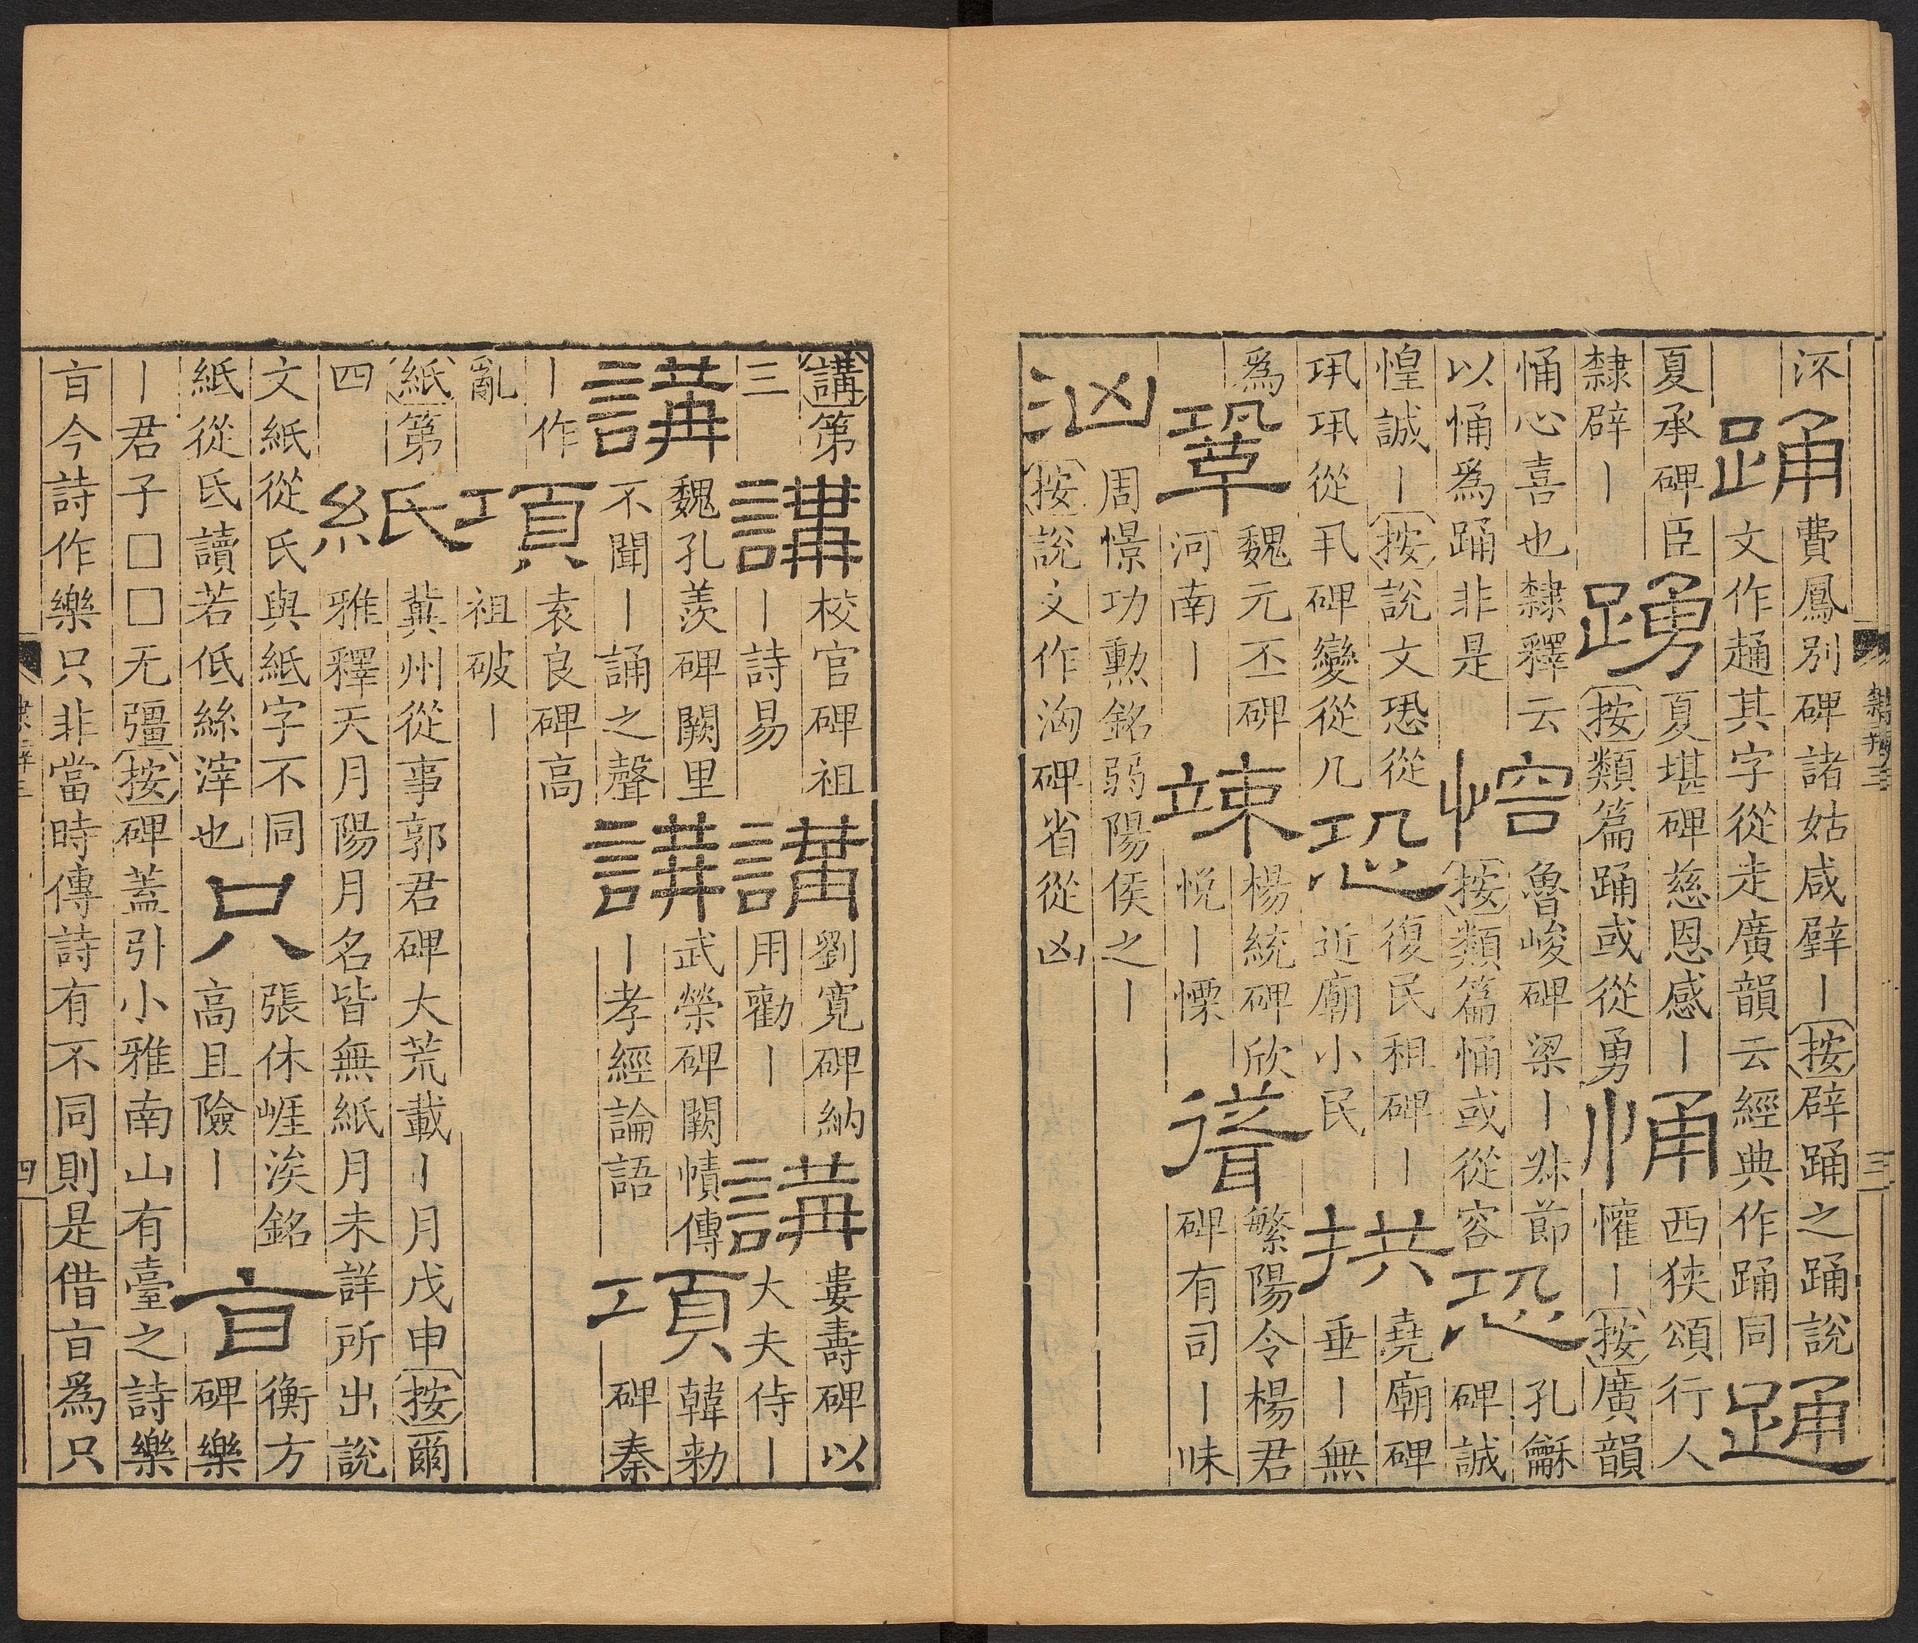 踊費鳳別碑諸姑咸擘丨按辟踊之踊說
文作其字從走廣韻云經典作踊同踊
夏承碑臣
隸辟丨
踴夏堪碑慈恩感丨
按類篇踊或從勇
悀西狹頌行人
懽丨按廣韻
悀心喜也隸釋云
以悀爲踊非是
愹魯峻碑梁丨節
按類篇悀或從容
恐孔龢
碑誠
惶誠丨按說文恐從
巩巩從丮碑變從几
恐復民租碑丨
近廟小民
拱堯廟碑
垂丨無
爲
鞏魏元丕碑
河南丨
竦楊統碑欣
悅丨慄
聳繁陽令楊君
碑有司丨昧
洶周憬功勳銘弱陽侯之丨
按說文作洶碑省從凶
隸辨三
三
講第
三
講校官碑祖
丨詩易
講劉寬碑納
用勸丨
講婁壽碑以
大夫侍丨
講魏孔羨碑闕里
不聞丨誦之聲
講武榮碑闕幘傳
丨孝經論語
項韓勑
碑秦
丨作
亂
項袁良碑高
祖破丨
紙第
四
紙冀州從事郭君碑大荒載丨月戊申按爾
雅釋天月陽月名皆無紙月未詳所出說
文紙從氏與紙字不同
紙從氐讀若低絲滓也
只張休崕涘銘
高且險丨
旨衡方
碑樂
丨君子□□无彊按碑蓋引小雅南山有臺之詩樂
旨今詩作樂只非當時傳詩有不同則是借旨爲只
四